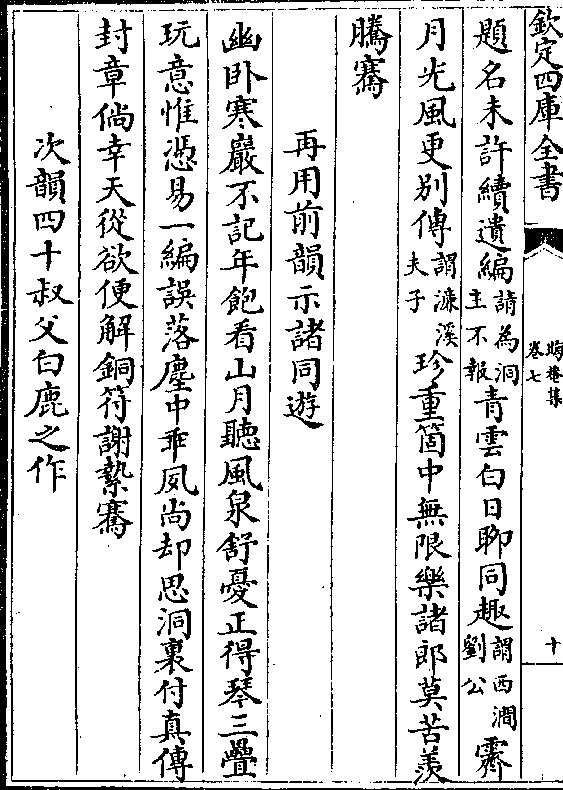 欽定四庫全書
晦庵集
卷七
十
題名未許續遺編請為洞主不報青雲白日聊同趣謂西澗劉公霽
月光風更别傳謂濂溪夫子珍重箇中無限樂諸郎莫苦羨
騰騫
再用前韻示諸同遊
幽卧寒巖不記年飽看山月聽風泉舒憂正得琴三疊
玩意惟憑易一編誤落塵中乖夙尚却思洞裏付真傳
封章倘幸天從欲便解銅符謝縶騫
次韻四十叔父白鹿之作